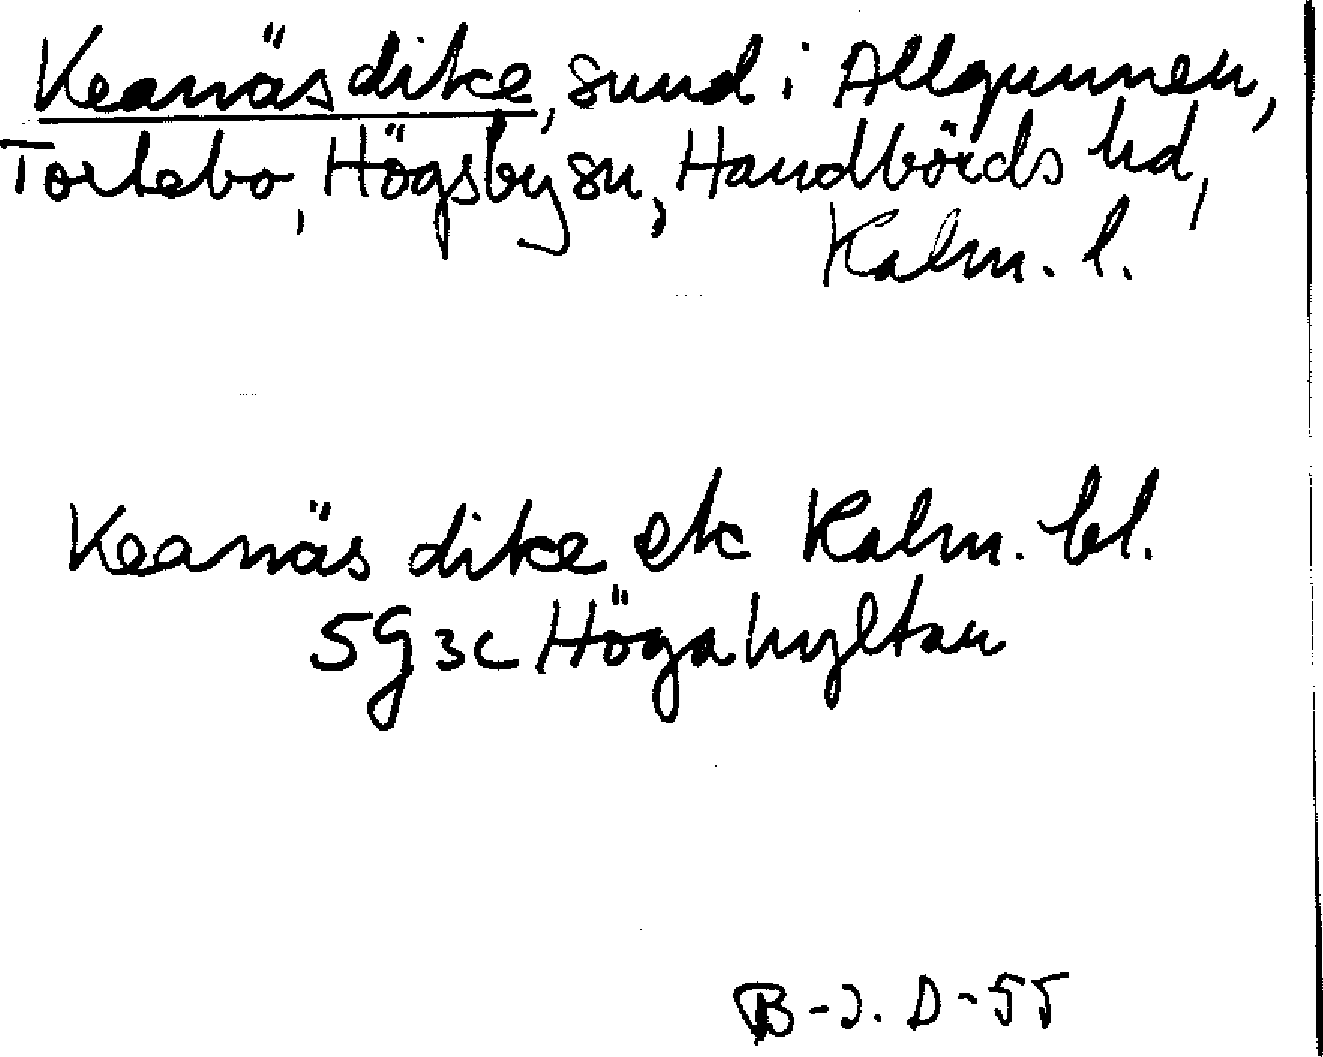 Kranäs dike, sund i Allgunnen,
Torlebo, Högsby sn, Handbörds hd,
Kalm. l.
Kranäs dike ek Kalm. bl.
5G3c Högahyltan
B-J. D-55